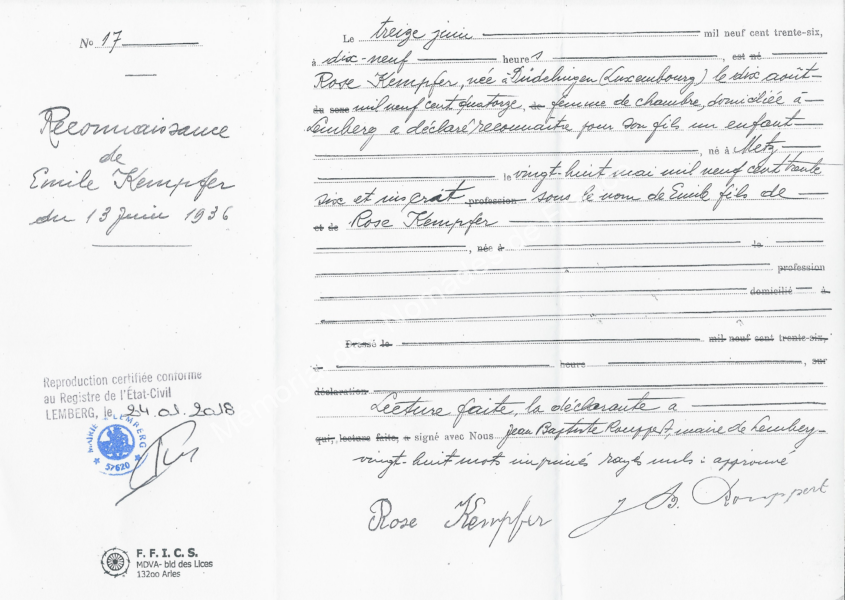 No 17
Reconnaissance
de
Emile Kempfer
du 13 Juin 1936
Reproduction certifiée conforme
au Registre de l'État-Civil
LEMBERG, le 24.01.2018
MAIRIE LEMBERG
57620
F. F. I. C. S.
MDVA- bld des Lices
13200 Arles
Le treize juin mil neuf cent trente-six,
à dix-neuf heures, est né
Rose Kempfer, née à (Luxembourg) le dix août
du sexe mil neuf cent quatorze, de femme de chambre, domiciliée à
Lemberg a déclaré reconnaître pour son fils un enfant
, né à Metz
le vingt-huit mai mil neuf cent trente
six et inscrit profession sous le nom de Emile fils de
et de Rose Kempfer
, née à le
profession
domicilié à
Dressé le mil neuf cent trente-six,
à heure , sur
déclaration
Lecture faite, la déclarante a
qui, lecture faite, a signé avec Nous Jean Baptiste Rouppert, maire de Lemberg
vingt-huit mots imprimés rayés nuls : approuvé
Rose Kempfer J. B. Rouppert